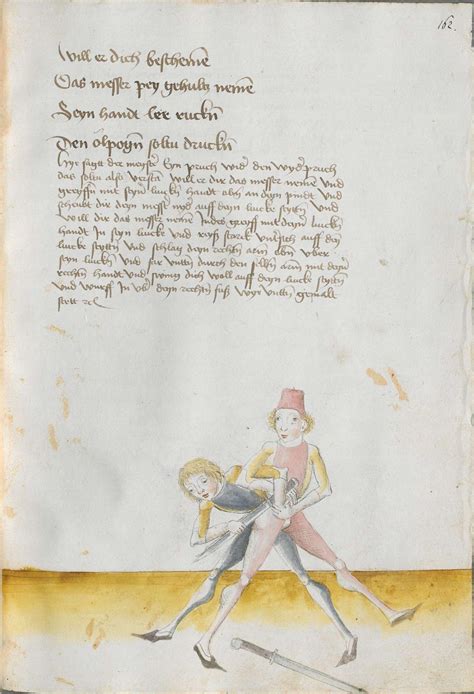 162.
Will er dich beschemē
Das messer pey gehultz nemē
Seyn handt lere ruckn̄
Den ölpogn̄ soltu druckn̄
Hye sagtt der meyster Eyn pruch wider den wyder pruch
das soltu also versten Will er dir das messer nemen und
greyfft mit seyner lincken handt obn̄ an deyn pindt und
scheibt dir deyn messer auff deyn lincke seytten und
Will dir das messer nemen Indes greyff mit deyner lincken
handt In seyn lincke und reyß starck auff deyn
lincke seytten und schlag deyn rechten arm obn̄ uber
seyn lincken und far unttn̄ durch den selbn̄ arm mit deyner
rechten handt und zwing dich woll auff deyn lincke seytten
und wurff In ub̄ deyn rechten fuß wye unttn̄ gemalt
stett rc